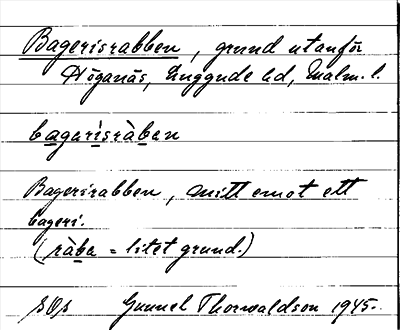 Bagerisrabben, grund utanför
Höganäs, Luggude hd, Malm. l.
bagarisràban
Bagerirabben, mitt emot ett
bageri.
(ràba = litet grund.)
sOs Gunnel Thorwaldson 1945.